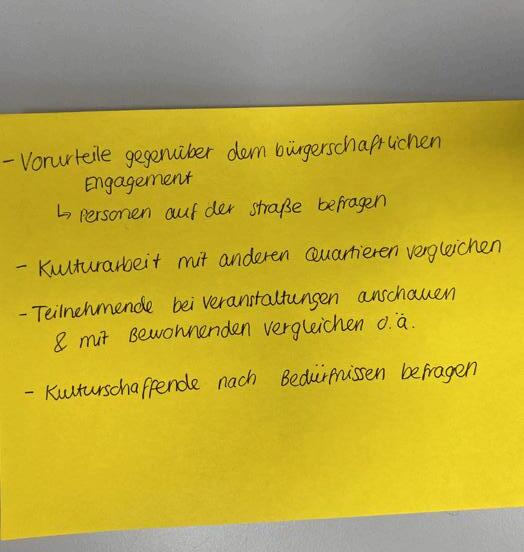 - Vorurteile gegenüber dem bürgerschaftlichen
Engagement
↳ Personen auf der straße befragen
- Kulturarbeit mit anderen Quartieren vergleichen
- Teilnehmende bei Veranstaltungen anschauen
& mit Bewohnenden vergleichen o.ä.
- Kulturschaffende nach Bedürfnissen befragen